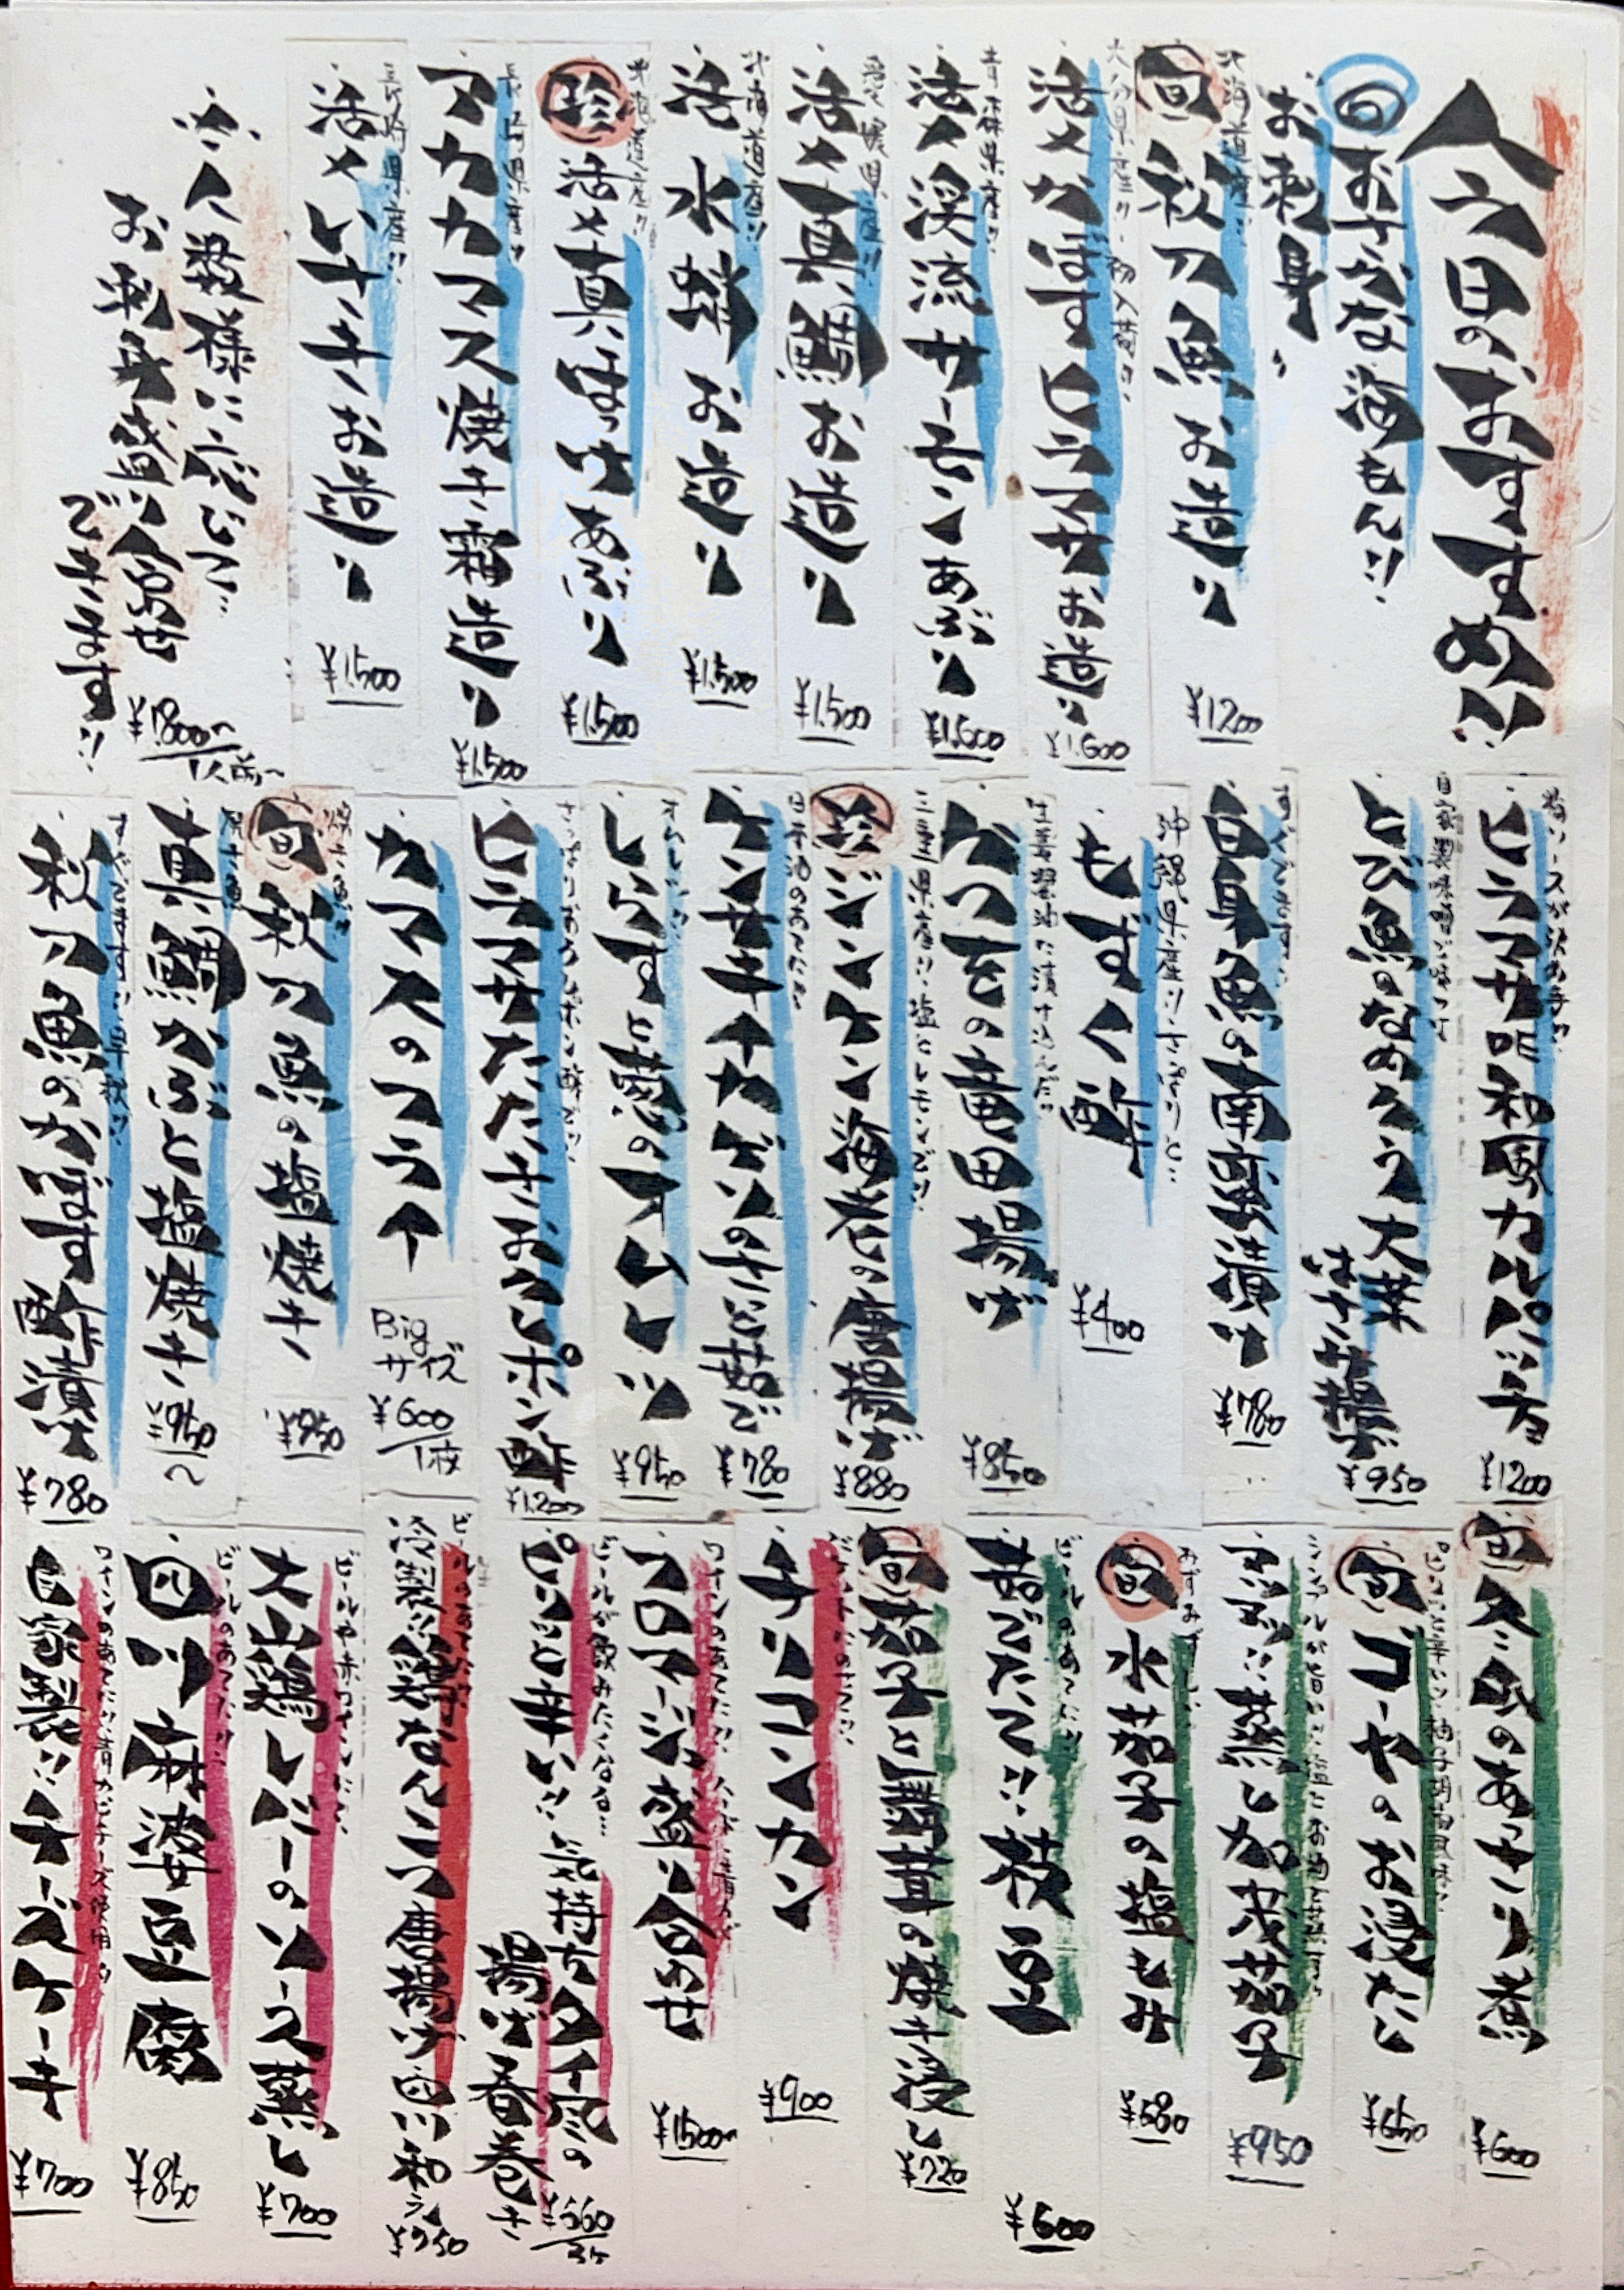 今日のおすすめ!!
旬 おさかな 海もん!!
お刺身
北海道産!!
旬 秋刀魚お造り
¥1200
大分県産!! 初入荷!!
活〆かぼすヒラマサお造り
¥1,600
青森県産!!
活〆渓流サーモンあぶり
¥1,600
愛媛県産!!
活〆真鯛お造り
¥1,500
北海道産!!
活 水蛸お造り
¥1,500
北海道産!!
珍 活〆真ほっけあぶり
¥1,500
長崎県産!!
アカカマス焼き霜造り
¥1,500
長崎県産!!
活〆いさきお造り
¥1,500
人数様に応じて…
お刺身盛り合せ
できます!!
¥1,800〜/1人前〜
ヒラマサ 和風カルパッチョ
¥1200
自家製味噌で味つけ
とび魚のなめろう大葉
はさみ揚げ
¥950
すぐでます!!
白身魚の南蛮漬け
¥780
沖縄県産!! さっぱりと…
もずく酢
¥400
生姜醤油に漬け込んだ!!
がつをの竜田揚げ
¥850
三重県産!! 塩とレモンで!!
珍 ジンケン海老の唐揚げ
¥880
日本酒のあてに!!
ケンサキイカゲソのさっと茹で
¥780
しらすと葱のオムレツ
¥950
ヒラマサたたきおろしポン酢
¥1,200
カマスのフライ
Big
サイズ
¥600/1枚
焼き魚!!
旬 秋刀魚の塩焼き
¥950
焼き魚
真鯛かぶと塩焼き
¥950〜
秋刀魚のかぼす酢漬け
¥780
旬 冬瓜のあっさり煮
¥600
ピリッと辛い!! 柚子胡椒風味!!
旬 ゴーヤのお浸たし
¥650
蒸し加茂茄子
¥950
旬 水茄子の塩もみ
¥680
ビールのあてに!!
茹でたて!! 枝豆
¥600
旬 茄子と舞茸の焼き浸し
¥720
チリコンカン
¥900
フロマージュ盛り合わせ
¥1500〜
ビールが飲みたくなる…
ピリッと辛い!! 気持ちタイ風の
揚げ春巻き
¥560/3ケ
ビールのあてに!!
冷製!! 鶏なんこつ唐揚げ 四川和え
¥950
ビールや赤ワインに!!
大山鶏レバーのソース蒸し
¥700
ビールのあてに!!
四川麻婆豆腐
¥850
ワインのあてに!! 青カビチーズ使用!!
自家製!! チーズケーキ
¥700